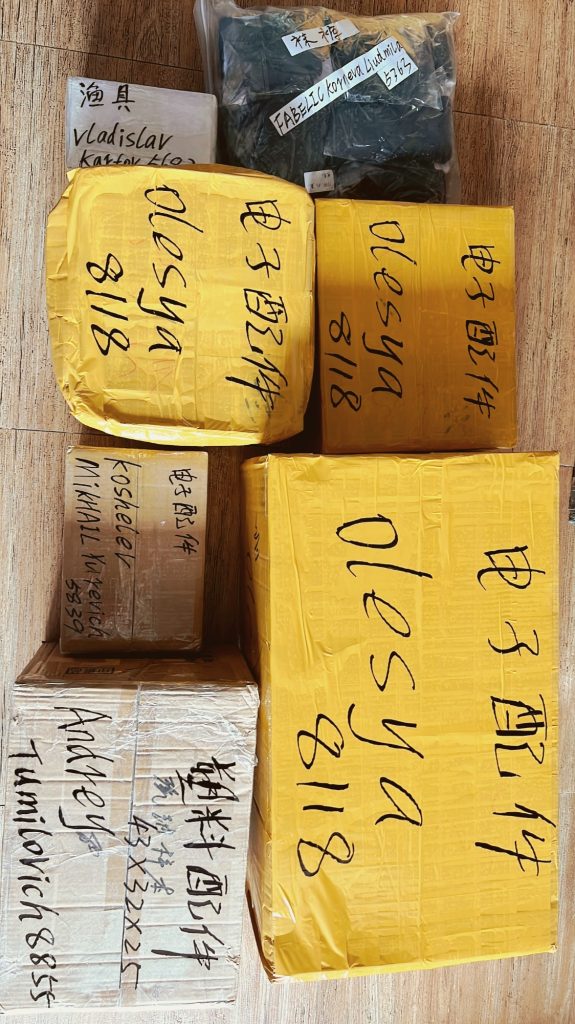 袜裤
FABELIC Korneva Liudmila
5363
渔具
vladislav
电子配件
olesya
8118
电子配件
olesya
8118
电子配件
koshelev
MIKHAIL Yurevich
5839
电子配件
olesya
8118
塑料配件
43X32X25
Andrey
Tumilovich 8855